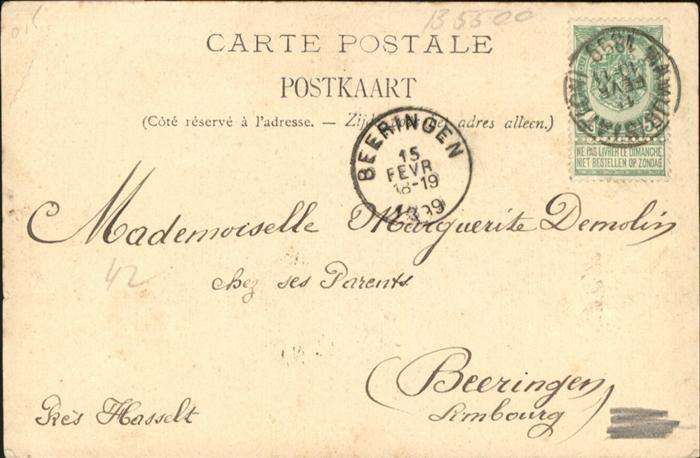 B5500
CARTE POSTALE
POSTKAART
(Côté réservé à l'adresse. — Zijde adres alleen.)
BEERINGEN
15
FEVR
18-19
1899
NAMUR (STATION)
FEVR
1899
NE PAS LIVRER LE DIMANCHE
NIET BESTELLEN OP ZONDAG
Mademoiselle Marguerite Demolin
42
chez ses Parents
Beeringen
Près Hasselt
Limbourg